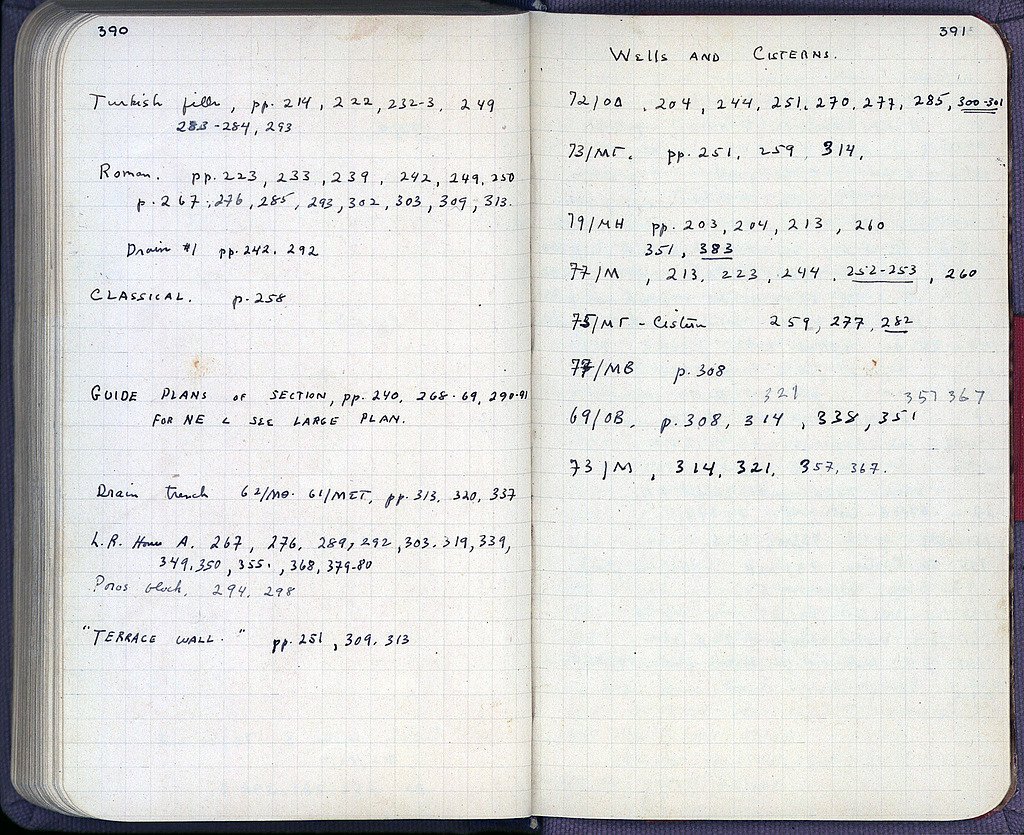 390
Turkish fills, pp. 214, 222, 232-3, 249
283-284, 293
Roman. pp. 223, 233, 239, 242, 249, 250
p. 267, 276, 285, 293, 302, 303, 309, 313.
Drain #1 pp. 242, 292
CLASSICAL. p. 258
GUIDE PLANS OF SECTION, pp. 240, 268-69, 290-91
FOR NE SEE LARGE PLAN.
Drain trench 62/ΜΘ- 61/ΜΣΤ, pp. 313, 320, 337
L.R. House A. 267, 276, 289, 292, 303, 319, 339,
349, 350, 355, 368, 379-80
Poros block, 294, 298
"TERRACE WALL." pp. 251, 309, 313
391
WELLS AND CISTERNS.
72/ΟΔ, 204, 244, 251, 270, 277, 285, 300-301
73/ΜΓ. pp. 251, 259 314,
79/ΜΗ pp. 203, 204, 213, 260
351, 383
77/Μ, 213, 223, 244, 252-253, 260
75/ΜΓ - Cistern 259, 277, 282
77/ΜΒ p. 308
321 357 367
69/ΟΒ, p. 308, 314, 338, 351
73/Μ, 314, 321, 357, 367.